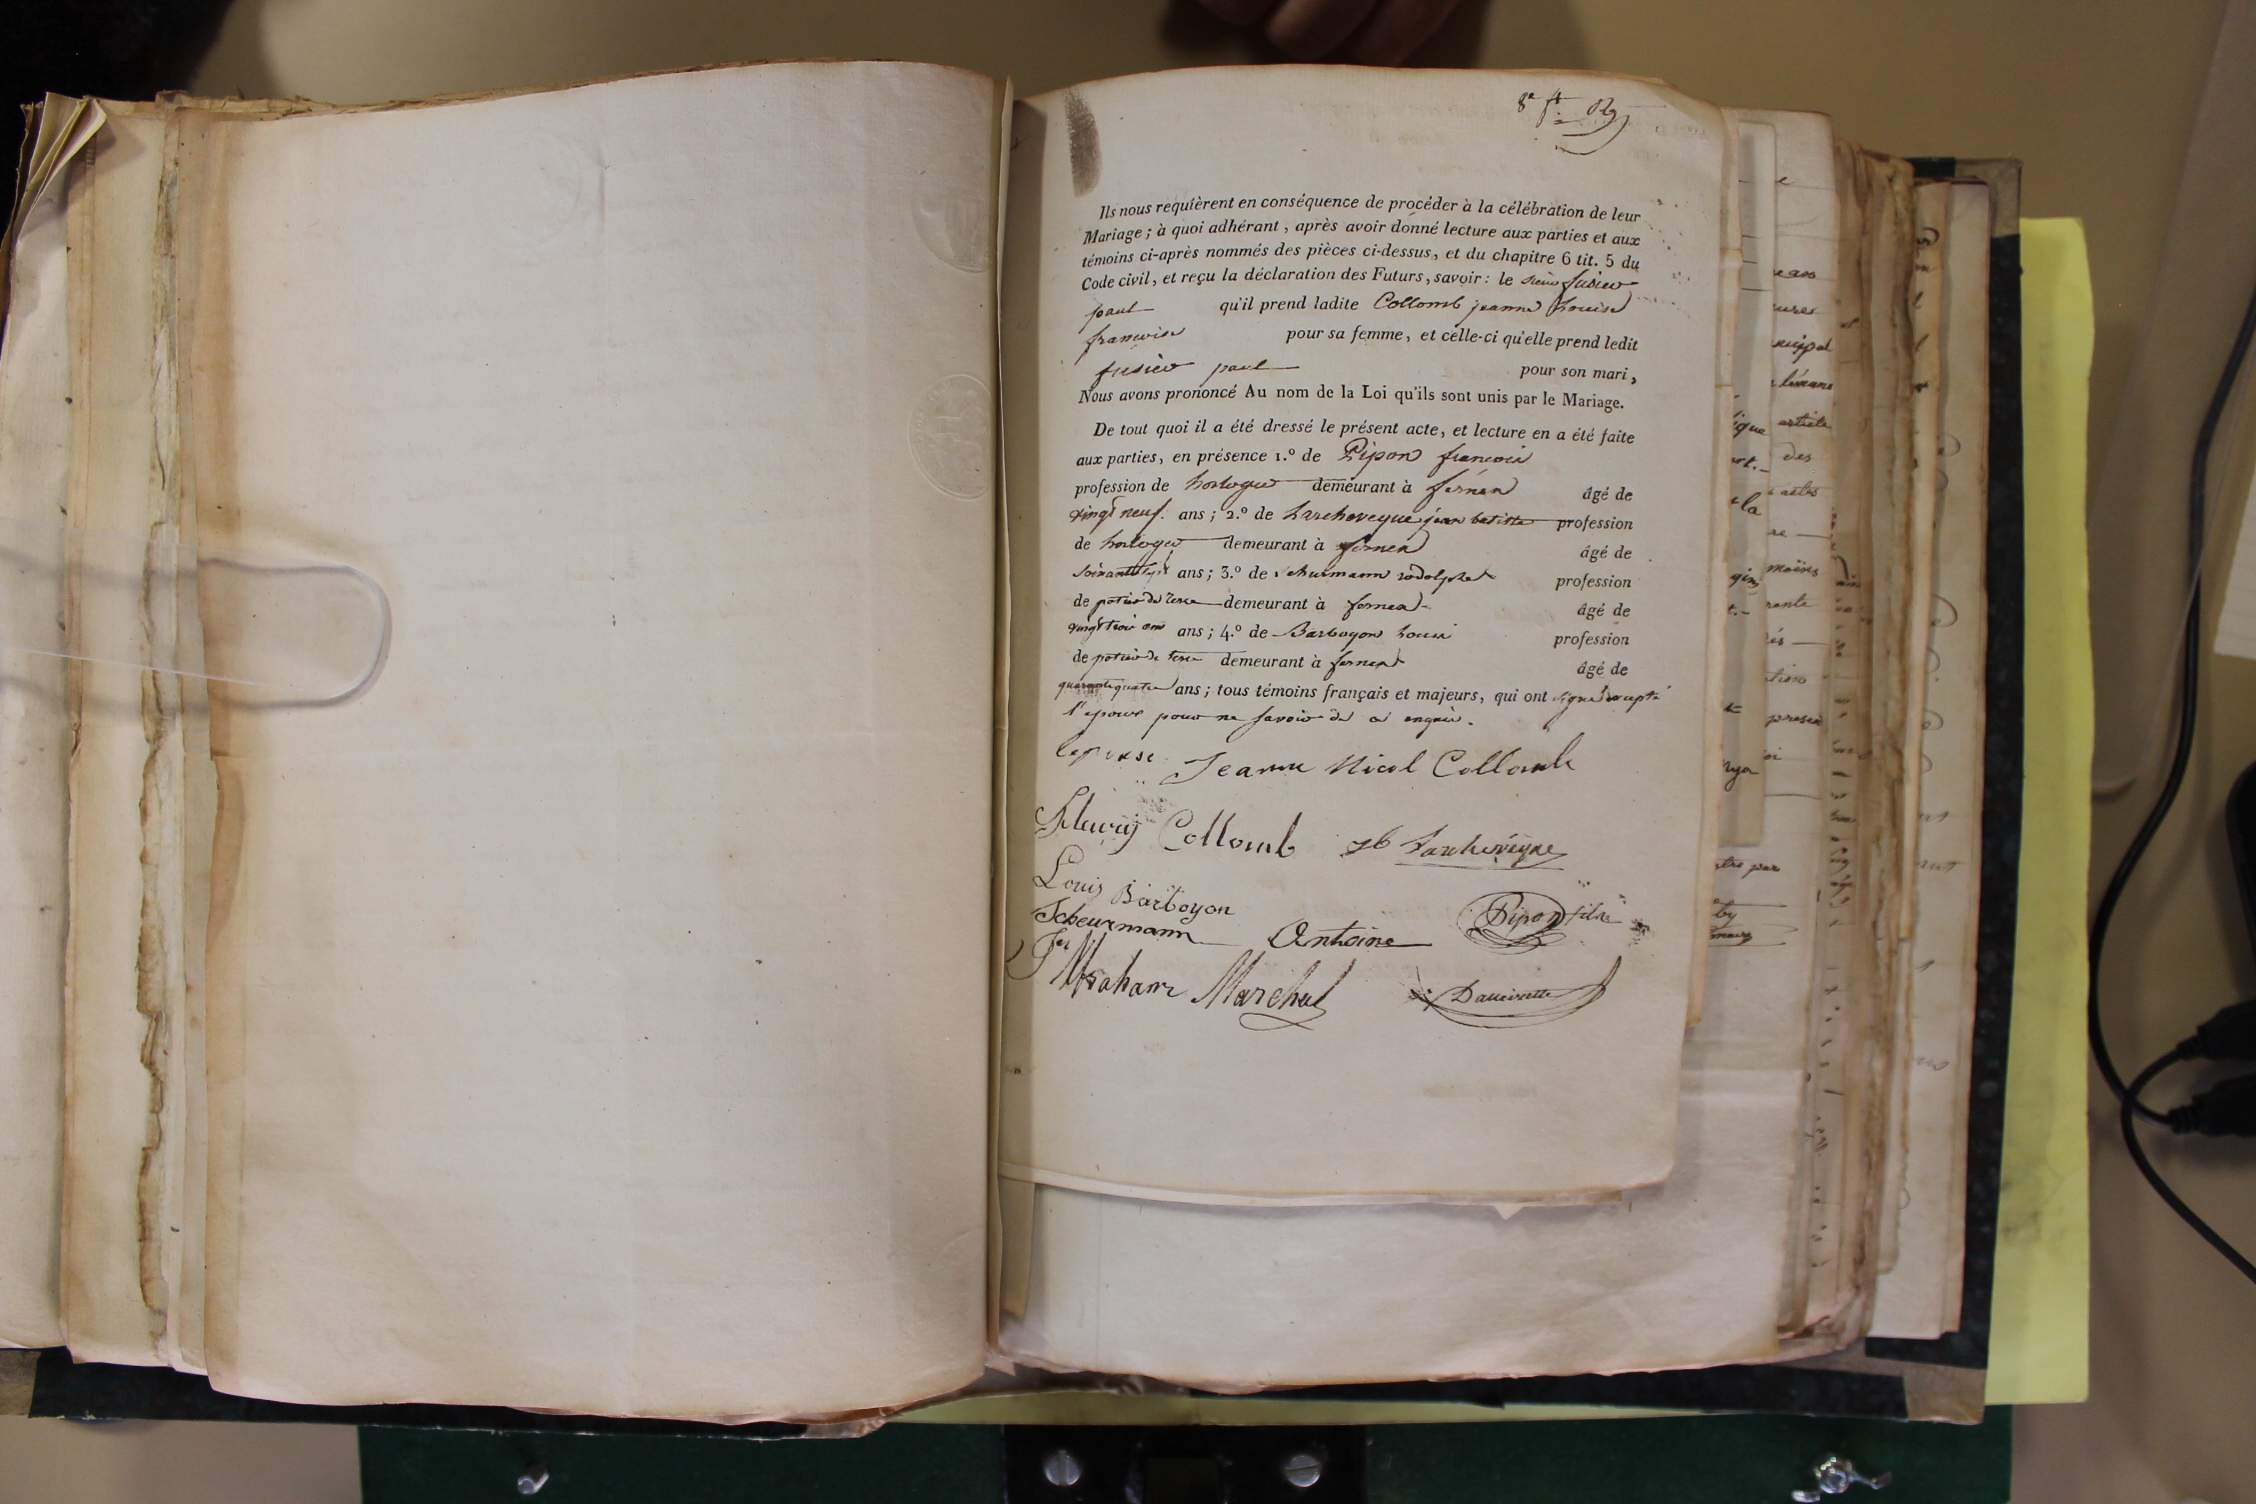 8e ft.
Ils nous requièrent en conséquence de procéder à la célébration de leur
Mariage ; à quoi adhérant , après avoir donné lecture aux parties et aux
témoins ci-après nommés des pièces ci-dessus, et du chapitre 6 tit. 5 du
Code civil, et reçu la déclaration des Futurs, savoir : le sieur fusier
paul qu'il prend ladite Collomb jeanne Louise
francoise pour sa femme, et celle-ci qu'elle prend ledit
fusier paul pour son mari,
Nous avons prononcé Au nom de la Loi qu'ils sont unis par le Mariage.
De tout quoi il a été dressé le présent acte, et lecture en a été faite
aux parties, en présence 1.º de Pipon francois
profession de horloger demeurant à fernex âgé de
vingt neuf ans ; 2.º de Larcheveque jean batiste profession
de horloger demeurant à fernex âgé de
ans ; 3.º de schurmann rodolphe profession
de potier de terre demeurant à fernex âgé de
vingt trois ans ans ; 4.º de Barboyon Louis profession
de potier de terre demeurant à fernex âgé de
quarante quatre ans ; tous témoins français et majeurs, qui ont signé excepté
l'epoux pour ne savoir de ce enquis.
lepouse Jeanne Nicol Collomb
Fleury Collomb jb Larcheveque
Louis Barboyon
Scheurmann Antoine Pipon
Abraham Marchal